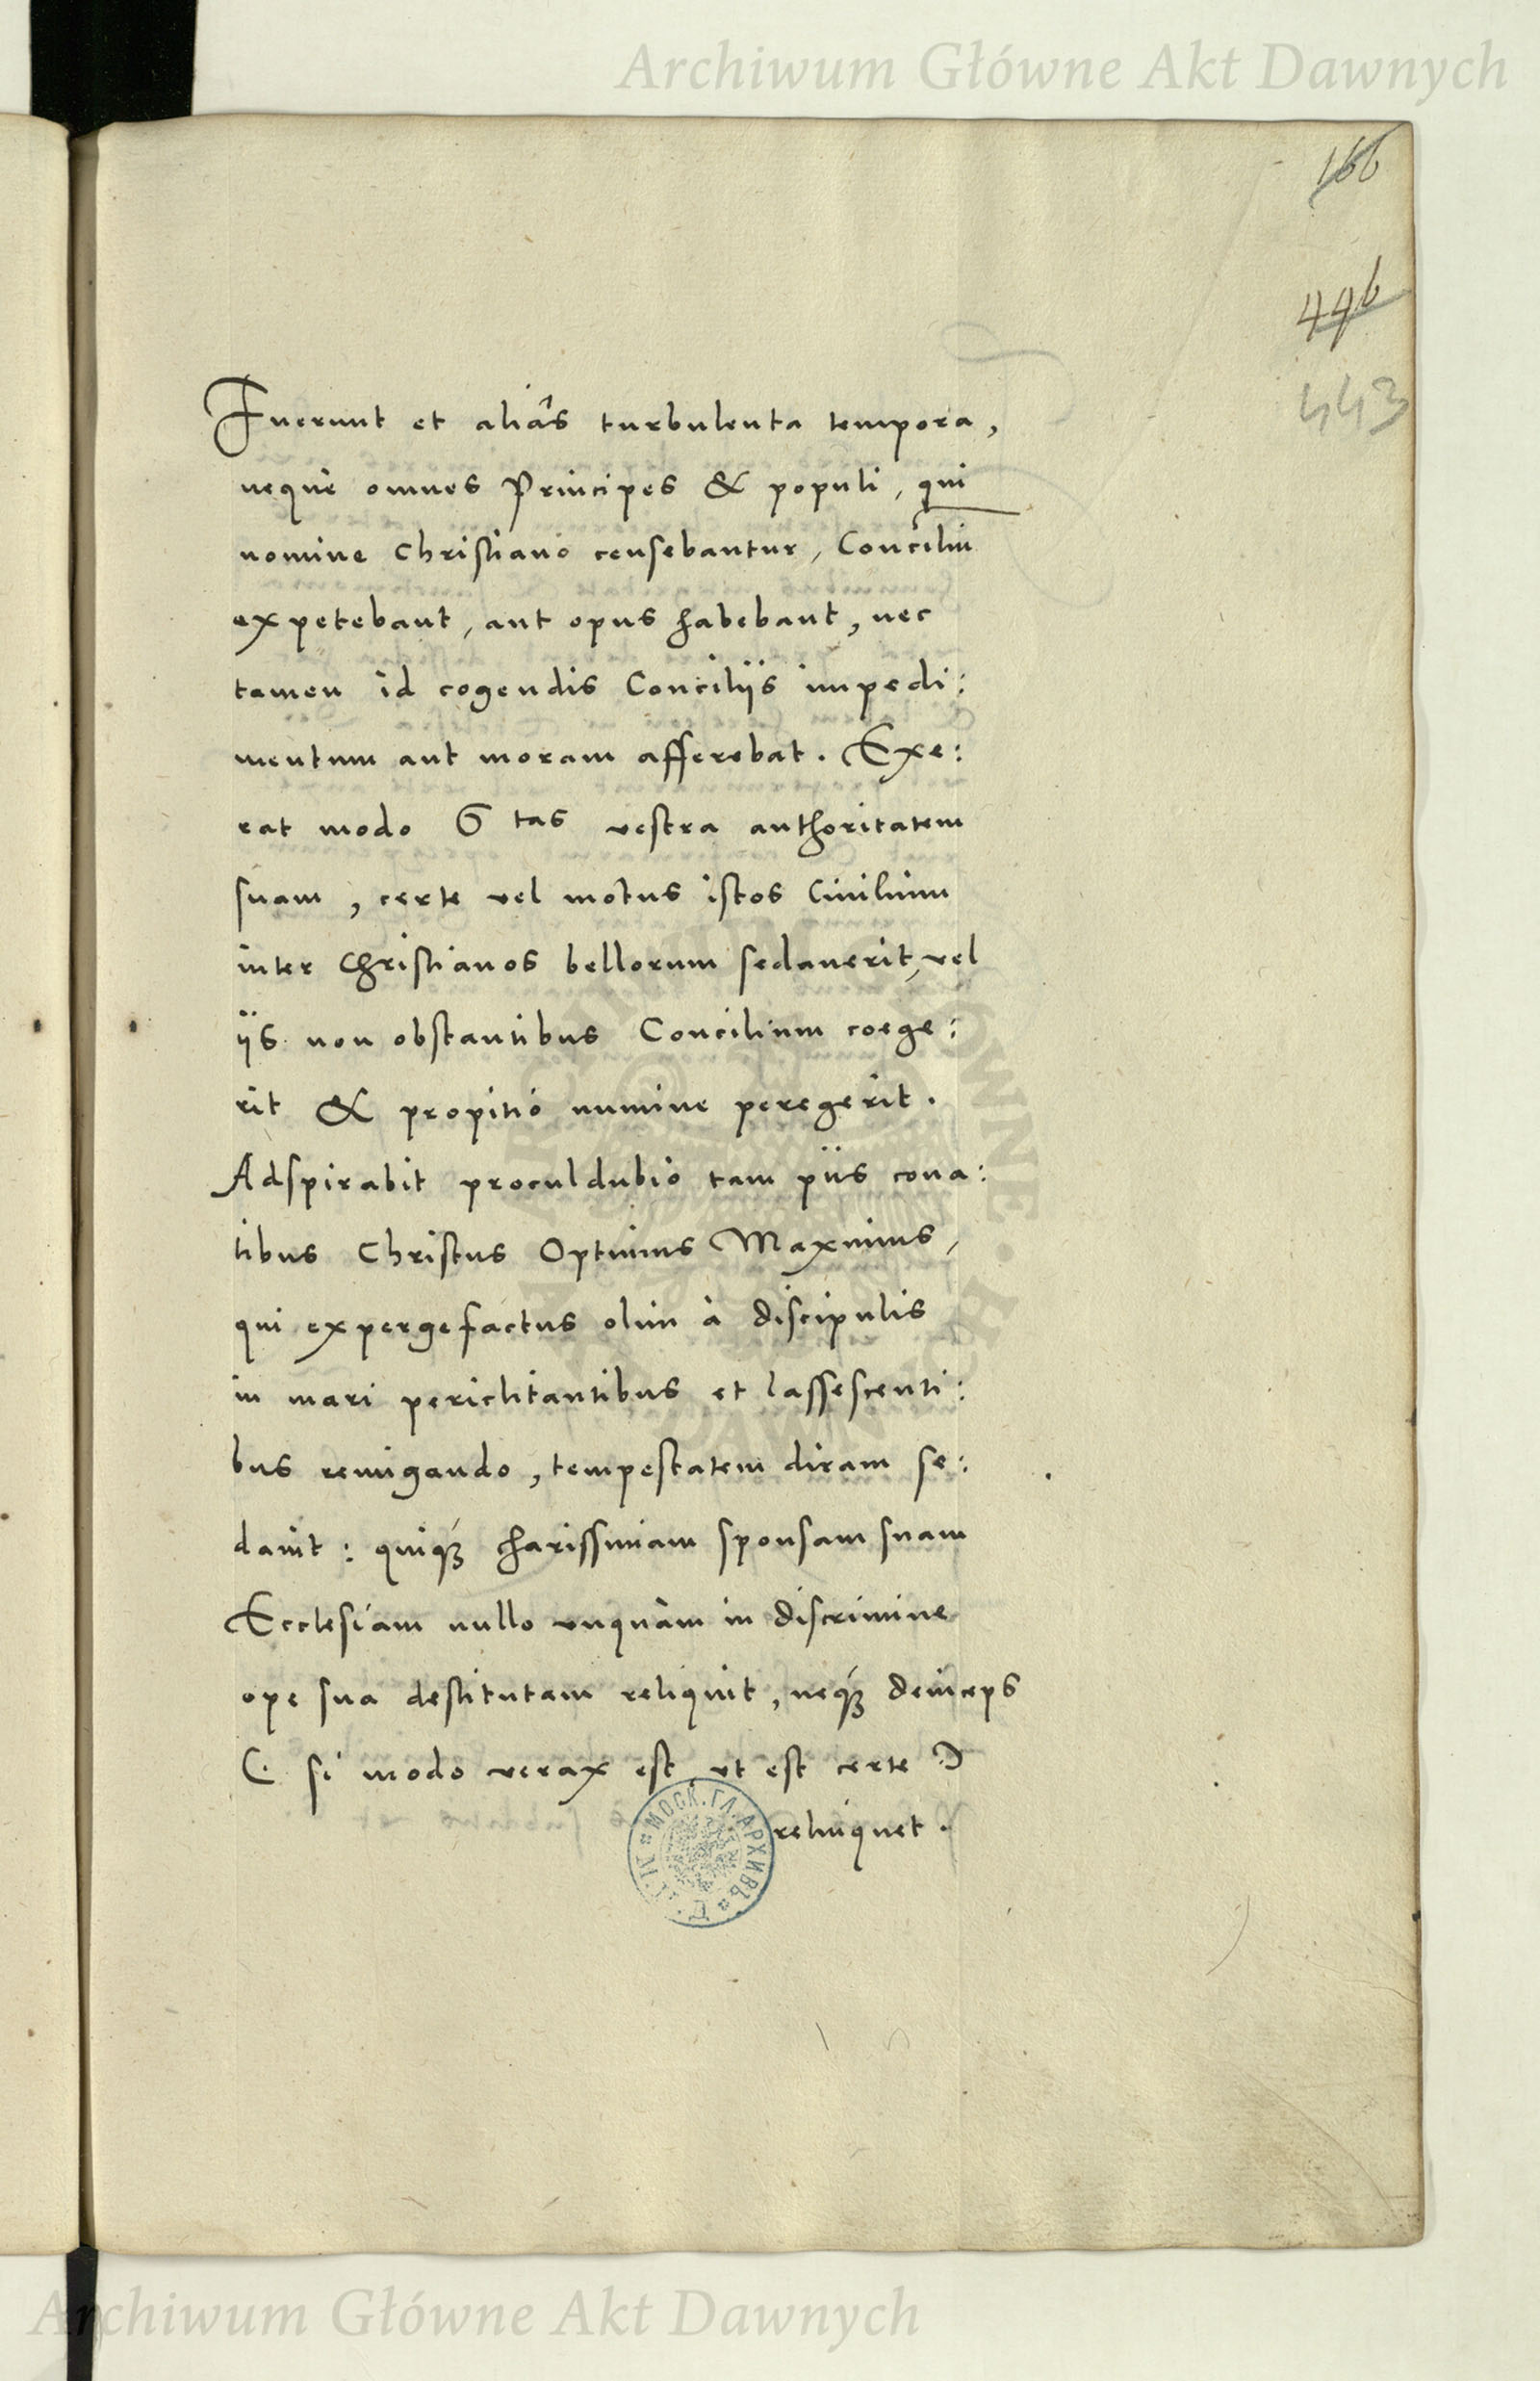 Archiwum Główne Akt Dawnych
166
446
443
Fuerunt et aliâs turbulenta tempora,
neque omnes Principes & populi, qui
nomine Christiano censebantur, Conciliu
expetebant, aut opus habebant, nec
tamen id cogendis Conciliijs impedi:
mentum aut moram afferebat. Exe:
rat modo S tas vestra authoritatem
suam, certe vel motus istos Ciuilium
inter Christianos bellorum sedauerit, vel
ijs non obstantibus Concilium coege:
rit & propitio numine peregerit.
Adspirabit proculdubio tam piis cona:
tibus Christus Optimus Maximus,
qui expergefactus olim à discipulis
in mari periclitantibus et lassescenti:
bus remigando, tempestatem diram se:
dauit: quiq3 charissimam sponsam suam
Ecclesiam nullo vnquam in discrimine
ope sua destitutam reliquit, neq3 deinceps
( si modo verax est, vt est certe )
relinquet.
МОСК. ГЛ. АРХИВЪ
Archiwum Główne Akt Dawnych